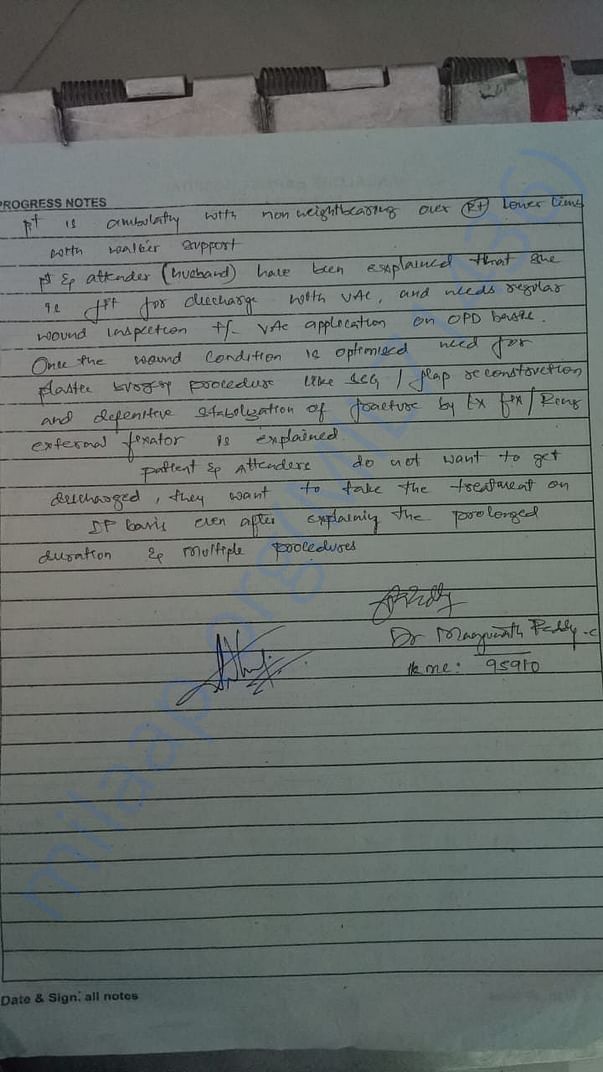 PROGRESS NOTES
pt is ambulatry with non weightbearing over Rt Lower limb
with walker support
pt & attender (husband) have been explained that she
is fit for discharge with VAC, and needs regular
wound inspection +/- VAC application on OPD basis.
Once the wound condition is optimised need for
plastic surgery procedure like SSG / flap reconstruction
and definitive stabilization of fracture by Ex fix / Ring
external fixator is explained.
patient & Attenders do not want to get
discharged, they want to take the treatment on
IP basis even after explaining the prolonged
duration & multiple procedures
Dr Manjunath Reddy. C
kmc: 95910
Date & Sign: all notes
milaap.org